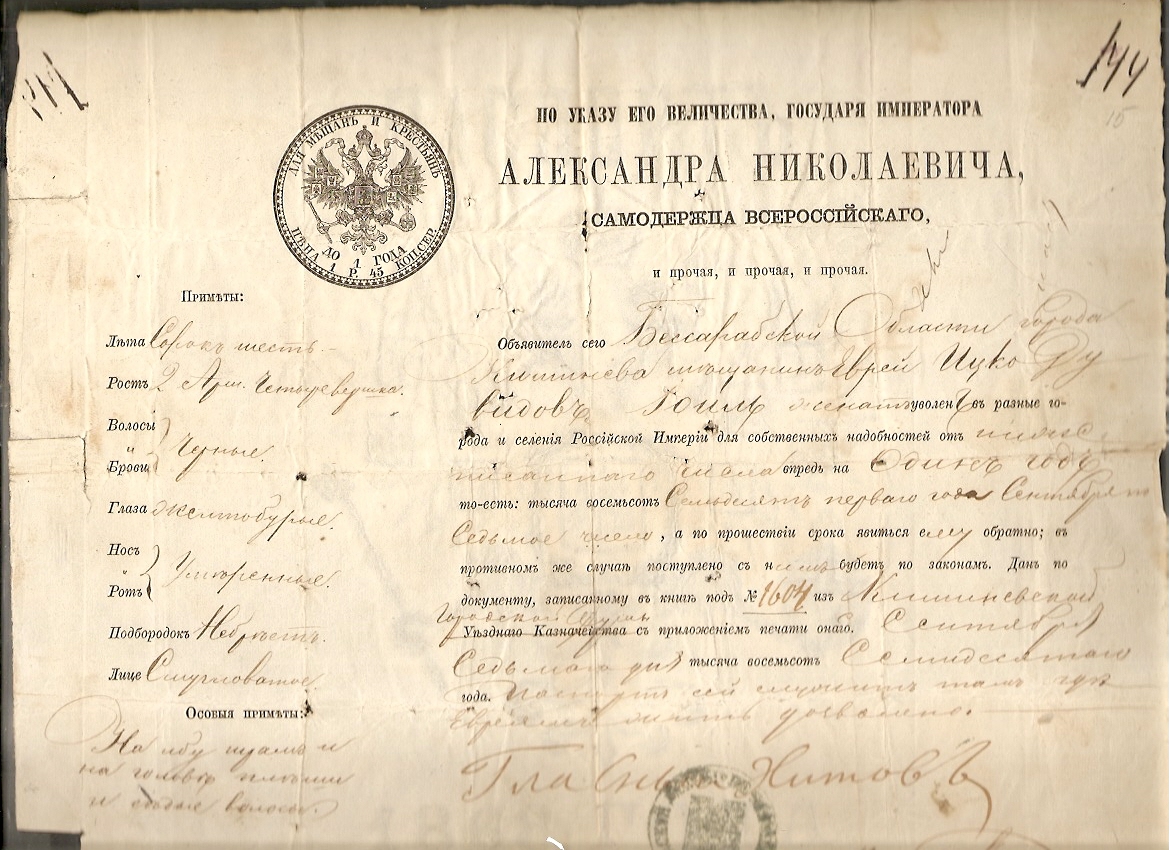 144
ПО УКАЗУ ЕГО ВЕЛИЧЕСТВА, ГОСУДАРЯ ИМПЕРАТОРА
АЛЕКСАНДРА НИКОЛАЕВИЧА,
САМОДЕРЖЦА ВСЕРОССІЙСКАГО,
и прочая, и прочая, и прочая.
ДЛЯ МѢЩАНЪ И КРЕСТЬЯНЪ
ДО 1 ГОДА
ЦѢНА 1 Р. 45 КОП. СЕР.
Примѣты:
Лѣта Сорокъ шесть
Ростъ 2 Арш. Четыре вершка.
Волосы
„
Брови
Черные.
Глаза Желтобурые.
Носъ
„
Ротъ
Умѣренные.
Подбородокъ Небрѣетъ.
Лице Смугловатое
Особыя примѣты:
На лбу шрамъ и
на головѣ плѣши
и седые волосы.
Объявитель сего Бессарабской Области города
Кишинева мѣщанинъ Еврей Ицко Ду
видовъ Гоиль женатъ уволенъ въ разные го-
рода и селенія Россійской Имперіи для собственныхъ надобностей отъ ниже
писаннаго числа впредь на Одинъ годъ
то-есть: тысяча восемьсотъ Семьдесятъ перваго года Сентября
Седьмое число, а по прошествіи срока явиться ему обратно; въ
противномъ же случаѣ поступлено съ нимъ будетъ по законамъ. Данъ по
документу, записанному въ книгу подъ № 1604 изъ Кишиневской
Городской Думы
Уѣзднаго Казначейства съ приложеніемъ печати онаго. Сентября
Седьмаго дня тысяча восемьсотъ Семидесятаго
года. Паспортъ сей служитъ тамъ гдѣ
Евреямъ жить дозволено.